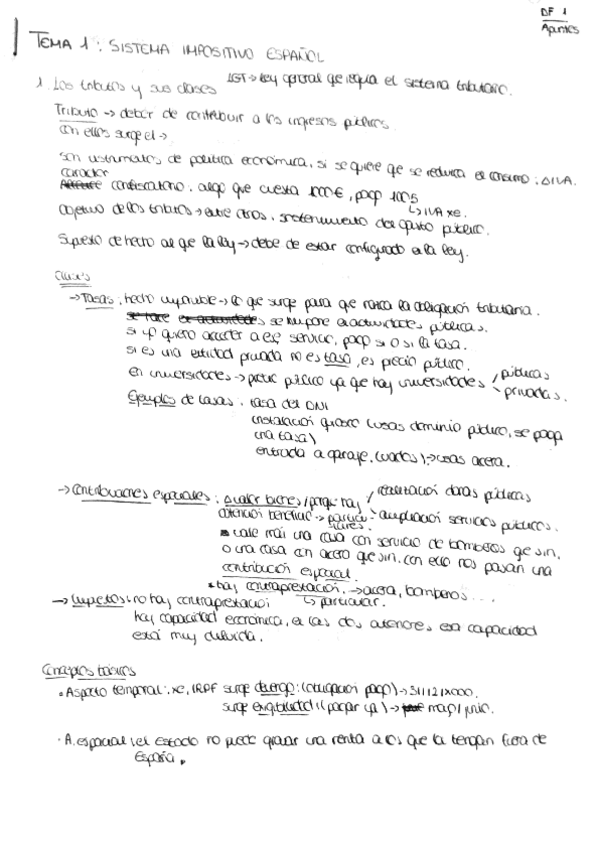 DF 1
Apuntes
TEMA 1: SISTEMA IMPOSITIVO ESPAÑOL
1. Los tributos y sus clases LGT → Ley general que regula el sistema tributario.
Tributo → deber de contribuir a los ingresos públicos
con ellos surge el →
son instrumentos de política económica, si se quiere que se reduzca el consumo: ΔIVA.
caracter
confiscatorio: algo que cuesta 1000€, pago 1005
↳ IVA xe.
Objetivo de los tributos → entre otros, sostenimiento del gasto público.
Supuesto de hecho al que la ley → debe de estar configurado en la ley.
Clases
→ Tasas: hecho imponible → lo que surge para que nazca la obligación tributaria.
se impone en actividades públicas.
si yo quiero acceder a ese servicio, pago si o si la tasa.
si es una entidad privada no es tasa, es precio público.
en universidades → precio público ya que hay universidades / públicas
privadas.
Ejemplos de tasas: tasa del DNI
instalación quiosco (usas dominio público, se paga
una tasa)
entrada a garaje (vados) → usas acera.
→ Contribuciones especiales: ↑valor bienes / porque hay / realización obras públicas
obtención beneficio → particulares - ampliación servicios públicos.
vale más una casa con servicio de bomberos que sin,
o una casa con acera que sin. con ello nos pasan una
contribución especial.
* hay contraprestación. → acera, bomberos...
→ Impuestos: no hay contraprestación ↳ particular.
hay capacidad económica, en las dos anteriores, esa capacidad
está muy diluida.
Conceptos básicos
• Aspecto temporal: xe, IRPF surge devengo: (obligación pago) → 31/12/X000.
surge exigibilidad (pagar ya) → mayo/junio.
• A. espacial: el estado no puede gravar una renta a los que la tengan fuera de
España.